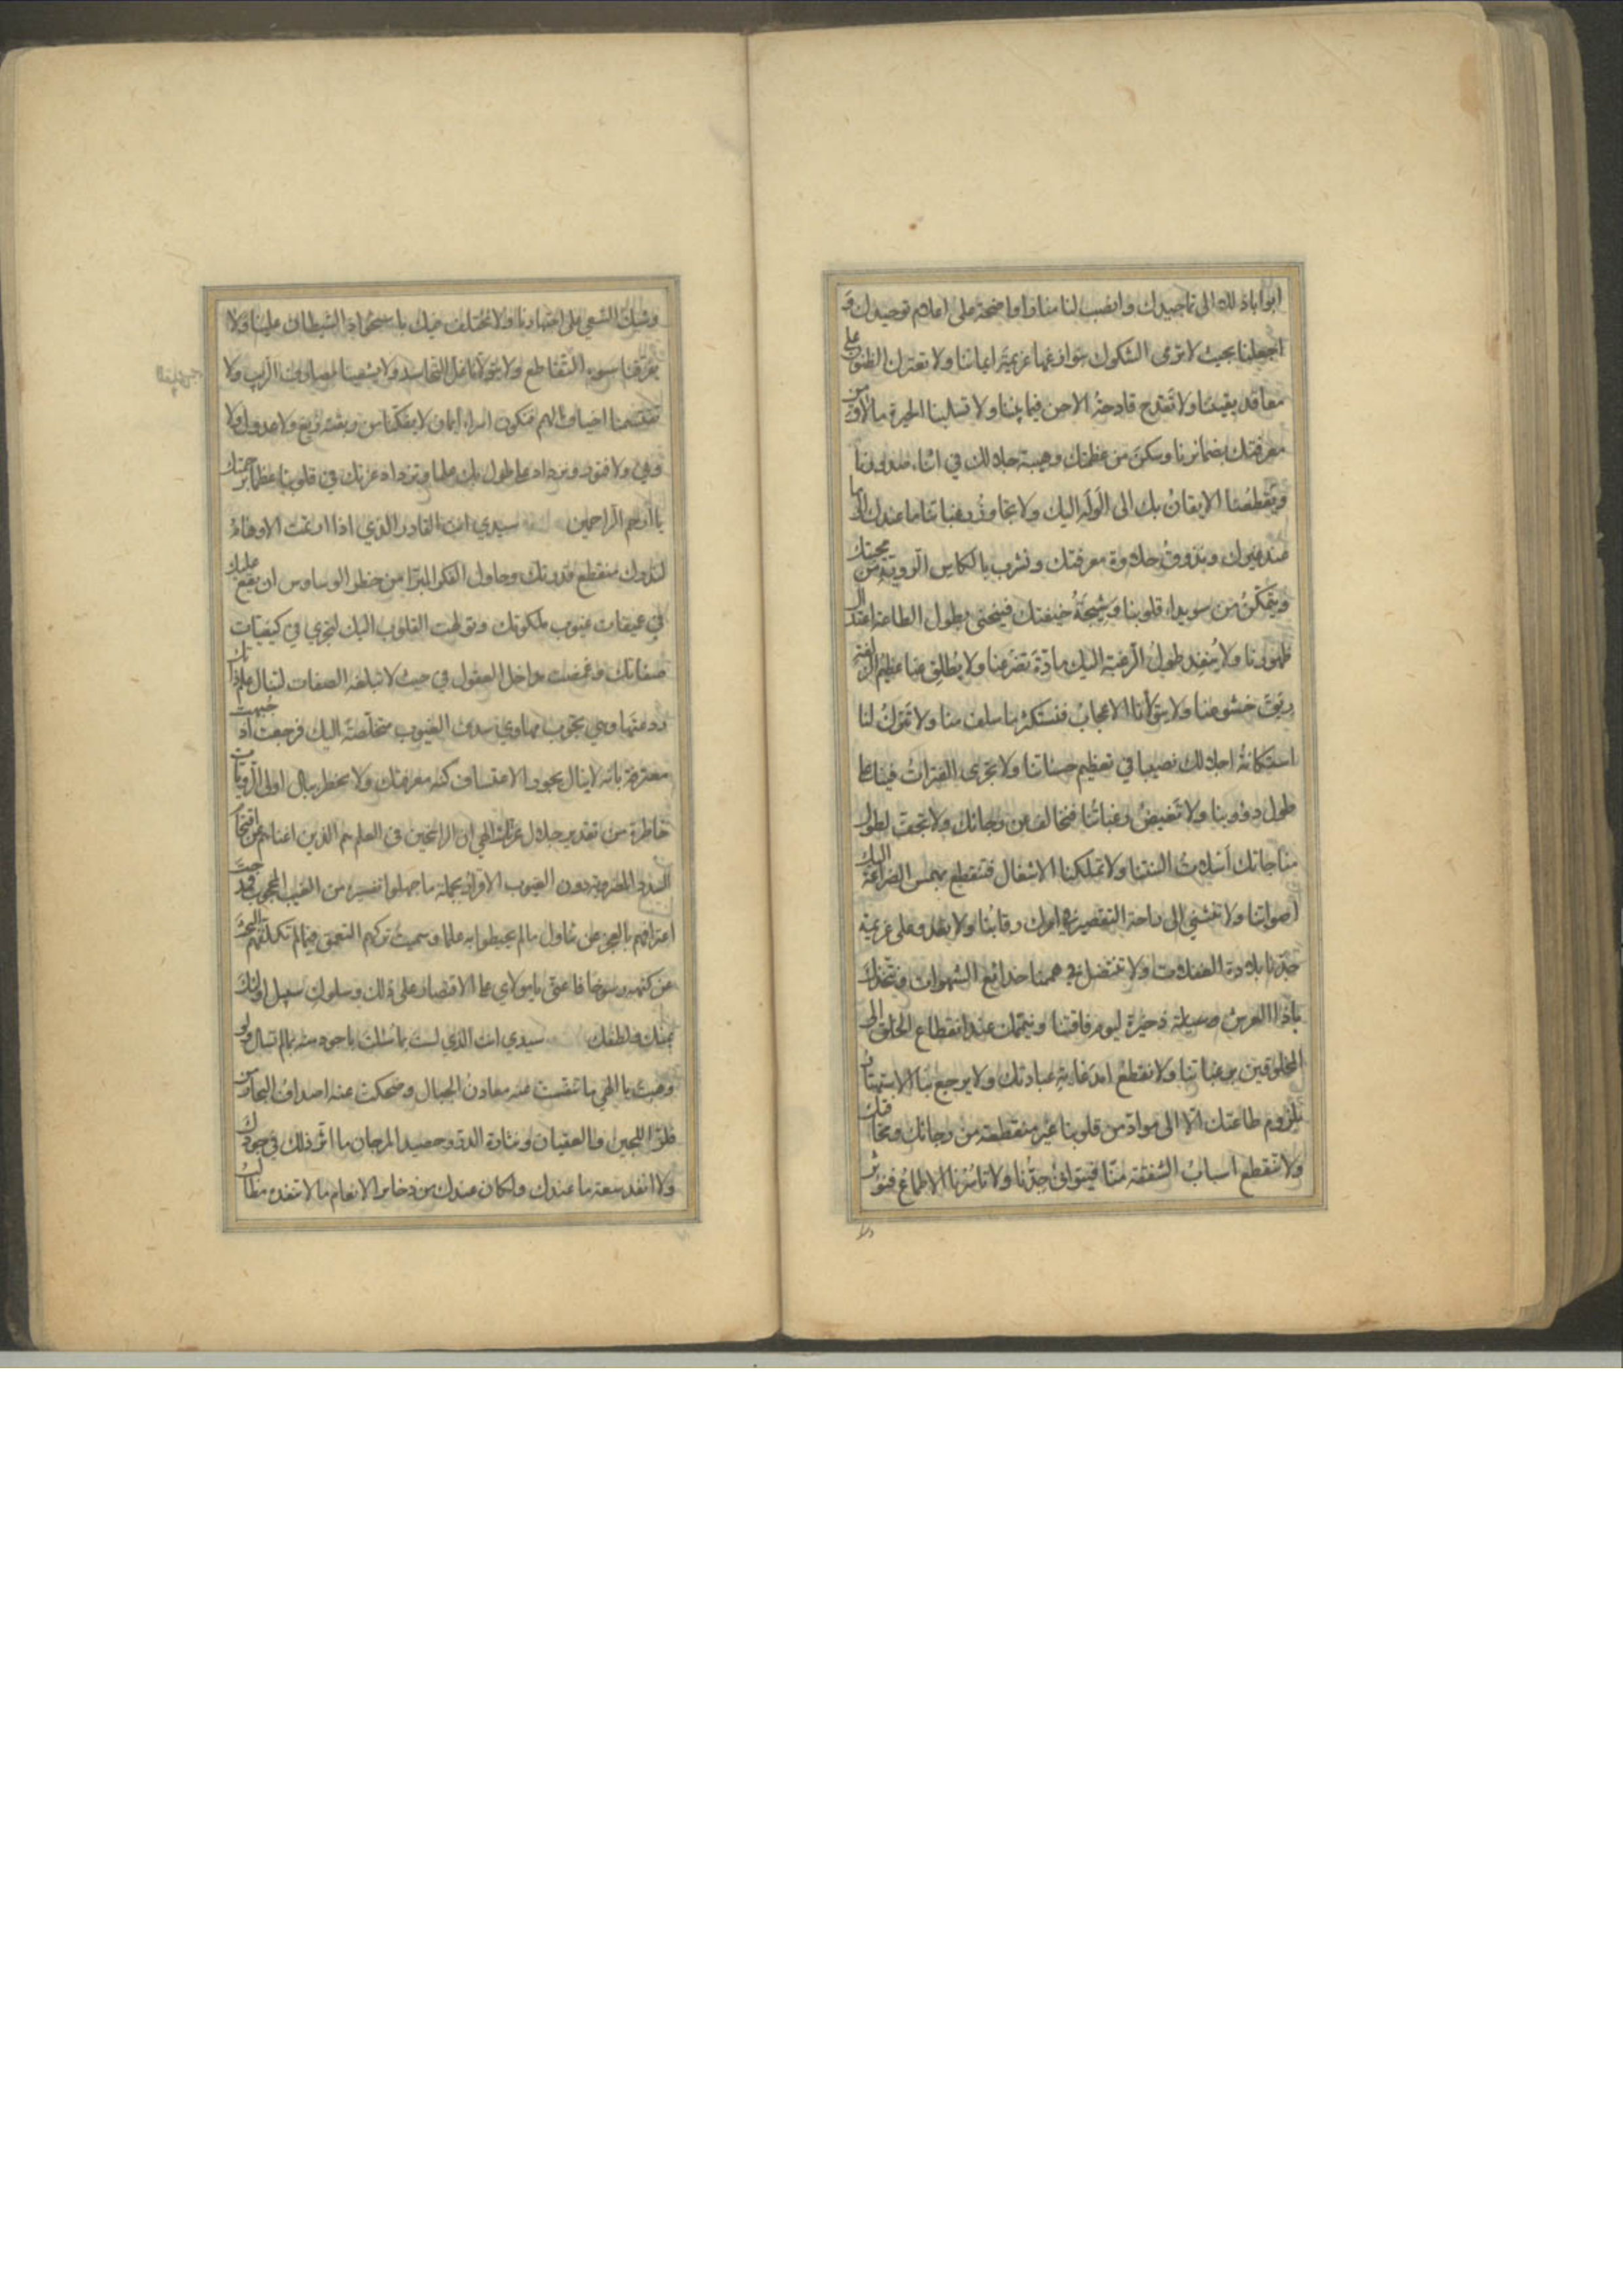 ابوابا ذللا الى تماجيدك وانصب لنا منارا واضحة على اعلام توحيدك و
اجعلنا بحيث لا ترمى الشكوك بنوازغها عزيمة ايماننا ولا تعترك الظنون على
معاقد يقيننا ولا تقدح قادحة الاحن فيما بيننا ولا تسلبنا الحيرة ما لاق من
معرفتك بضمائرنا وسكن من عظمتك وهيبة جلالك في اثناء صدورنا
ويقطعنا الايقان بك الى الوله اليك ولا تجاوز رغباتنا ما عندك الى ما
عند غيرك ونذوق حلاوة معرفتك ونشرب بالكاس الروية من محبتك
ويتمكن من سويداء قلوبنا وشيجة خيفتك فينحنى بطول الطاعة اعتدال
ظهورنا ولا ينفد طول الرغبة اليك مادة تضرعنا ولا يطلق عنا عظيم الزلفة
ربق خشوعنا ولا يتولانا الاعجاب فنستكثر ما سلف منا ولا تترك لنا
استكانة اجلالك نصيبا في تعظيم حسناتنا ولا تجرى الفترات فينا على
طول دؤوبنا ولا تغيض رغباتنا فنخالف عن رجائك ولا تجف لطول
مناجاتك اسلات السنتنا ولا تملكنا الاشغال فتنقطع بهمس الضراعة اليك
اصواتنا ولا تنثنى الى راحة التقصير في امرك رقابنا ولا تعدو على عزيمة
جدنا بلادة الغفلات ولا تنتضل في هممنا خدائع الشهوات ونتخذك
يا ذا العرش ذخيرة ليوم فاقتنا ونيممك عند انقطاع الخلق الى
المخلوقين برغباتنا ولا نقطع امد غاية عبادتك ولا يرجع بنا الاستهتار
بلزوم طاعتك الا الى مواد من قلوبنا غير منقطعة من رجائك ومخافتك
ولا تنقطع اسباب الشفقة منا فيتوانى جدنا ولا تاسرنا الاطماع فنؤثر
وشيك السعي على اجتهادنا ولا تختلف فيك باستحواذ الشيطان علينا ولا
يفرقنا سوء التقاطع ولا يتولانا غل التحاسد ولا يشعبنا لمصارف الريب ولا
تقتسمنا اخياف الهمم فنكون اسراء ايمان لا يفكنا من ربقته زيغ ولا عدول ولا
ونى ولا فتور ونزداد على طول بك علما وتزداد عزتك في قلوبنا عظما برحمتك
يا ارحم الراحمين سيدي انت القادر الذي اذا ارتمت الاوهام
لتدرك منقطع قدرتك وحاول الفكر المبرا من خطر الوساوس ان يقع عليك
في عميقات غيوب ملكوتك وتولهت القلوب اليك لتجري في كيفيات
صفاتك وغمضت مداخل العقول في حيث لا تبلغه الصفات لتنال علم ذاتك
ردعتها وهي تجوب مهاوي سدف الغيوب متخلصة اليك فرجعت اذ جبهت
معترفة بانه لا ينال بجور الاعتساف كنه معرفتك ولا يخطر ببال اولى الرويات
خاطرة من تقدير جلال عزتك الهي ان الراسخين في العلم هم الذين اغناهم عن اقتحام
السدد المضروبة دون الغيوب الاقرار بجملة ما جهلوا تفسيره من الغيب المحجوب فمدحت
اعترافهم بالعجز عن تناول ما لم يحيطوا به علما وسميت تركهم التعمق فيما لم تكلفهم البحث
عن كنهه رسوخا فاعني يا مولاي على الاقتصار على ذلك وسلوك سبيل اولئك
بمنك ولطفك سيدي انت الذي لست بما سئلت باجود منه بما لم تسال ولو
وهبت يا الهي ما تنفست عنه معادن الجبال وضحكت عنه اصداف البحار من
فلز اللجين والعقيان ونثارة الدر وحصيد المرجان ما اثر ذلك في جودك
ولا انفد سعة ما عندك ولكان عندك من ذخائر الانعام ما لا تنفده مطالب